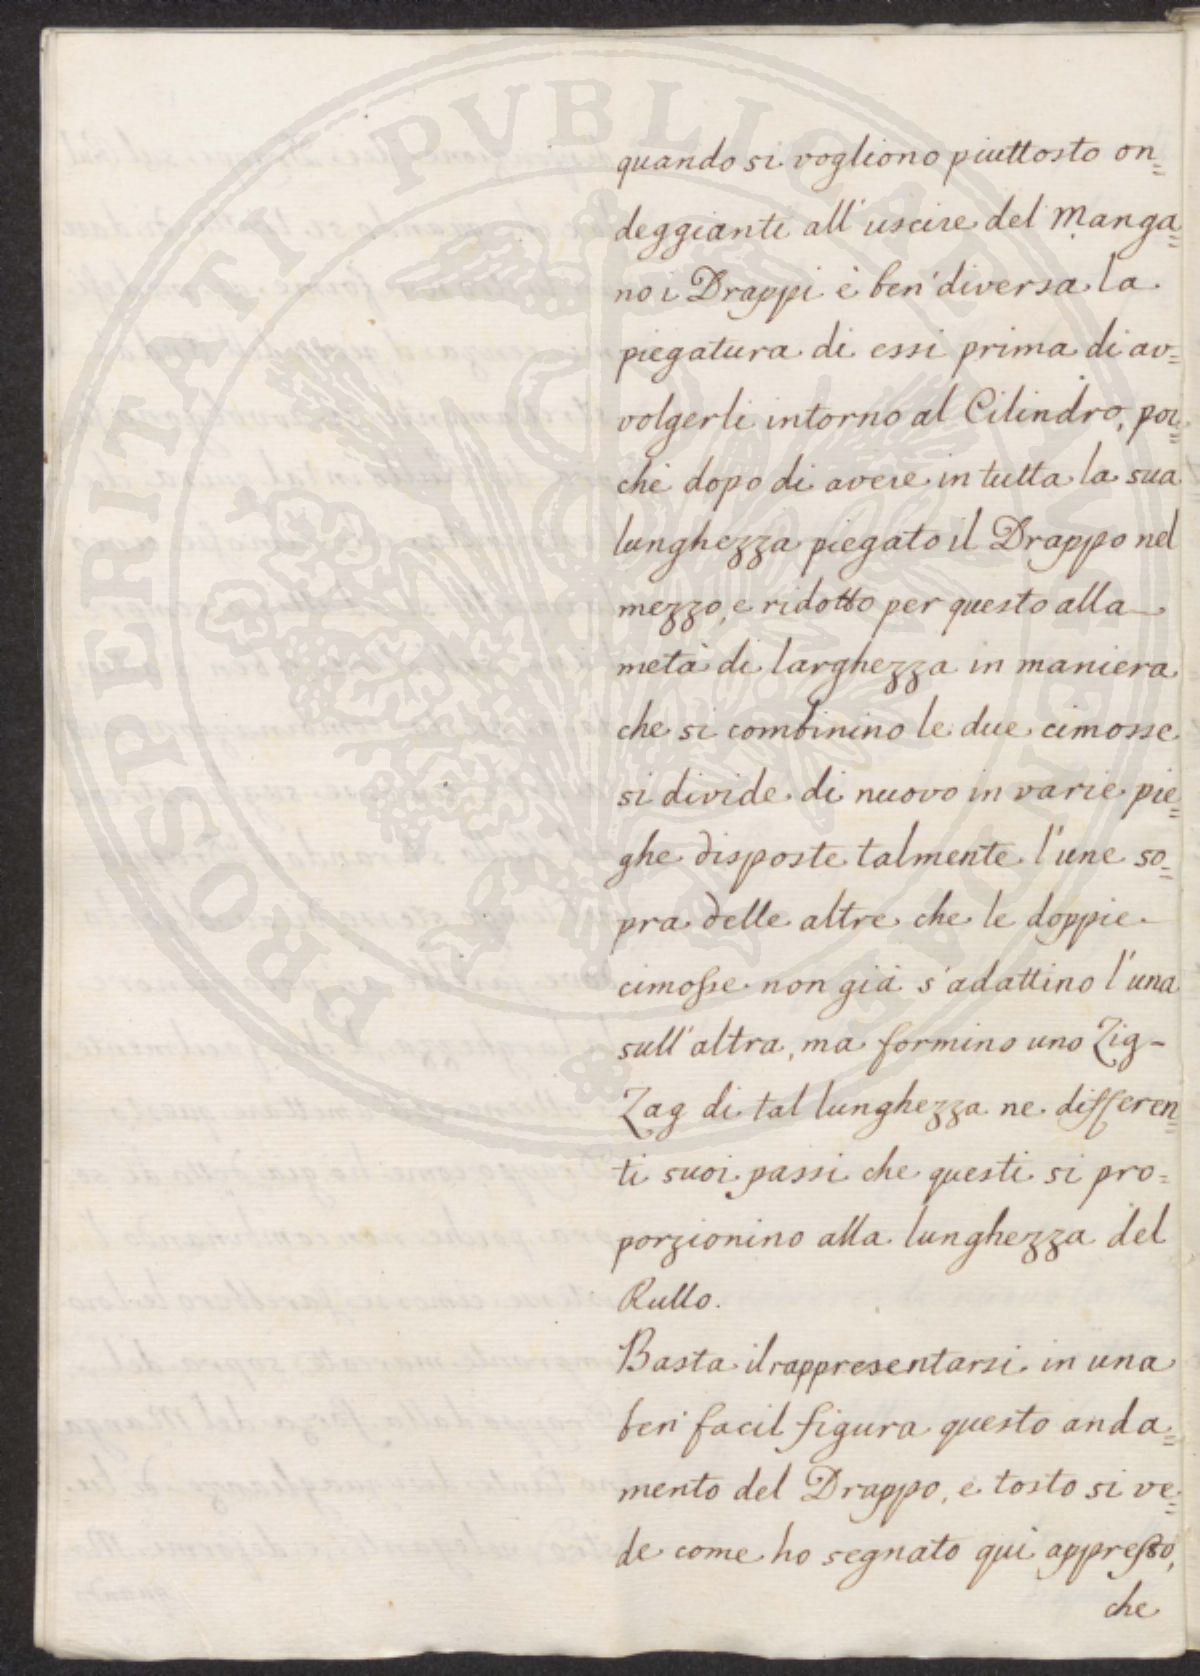 quando si vogliono piuttosto on=
deggianti all'uscire del Manga=
no i Drappi è ben'diversa la
piegatura di essi prima di av=
volgerli intorno al Cilindro, poi=
chè dopo di avere in tutta la sua
lunghezza piegato il Drappo nel
mezzo, e ridotto per questo alla
metà di larghezza in maniera
che si combinino le due cimosse
si divide di nuovo in varie pie=
ghe disposte talmente l'une so=
pra delle altre che le doppie
cimosse non già s'adattino l'una
sull'altra, ma formino uno Zig-
Zag di tal lunghezza ne differen
ti suoi passi che questi si pro=
porzionino alla lunghezza del
Rullo.
Basta il rappresentarsi in una
ben facil figura questo anda=
mento del Drappo, e tosto si ve=
de come ho segnato qui appresso,
che
PROSPERITATI PUBLICAE AUGENDAE